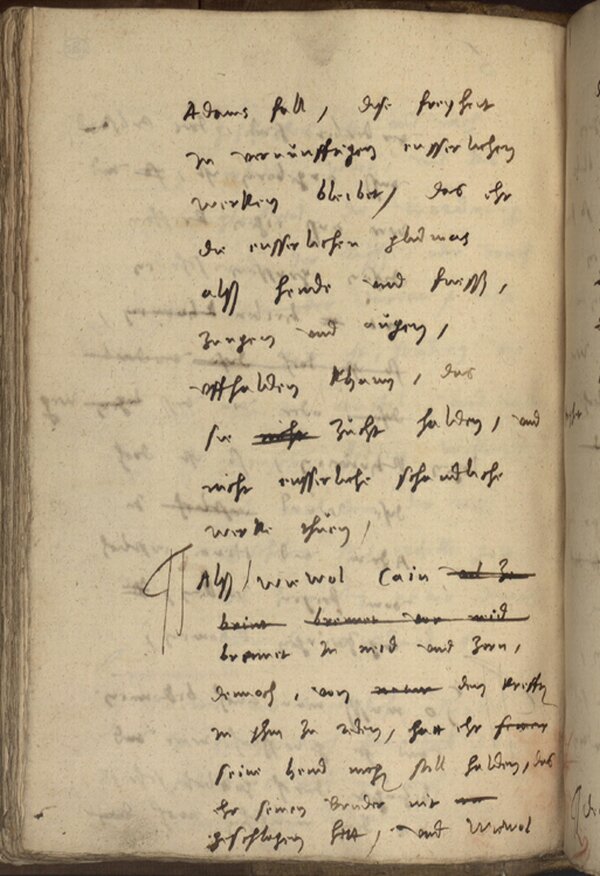 Adams fall, dise freyheit
in vernünfftigen eusserlichen
werken bleibet, das ehr
die eusserlichen glidmas
alß hende und fuesß,
zungen und augen,
uffhalden khann, das
sie nicht zucht halden, und
nicht eusserliche schandliche
werke thuen,
Alß, wiewol Cain
brennet vor neid
brennet in neid und zorn,
dennoch, von natur den krefften
in ihm zu reden, hatt ehr
seine hend mogen still halden, das
ehr seinen bruder nit
geschlagen hett, und wiewol